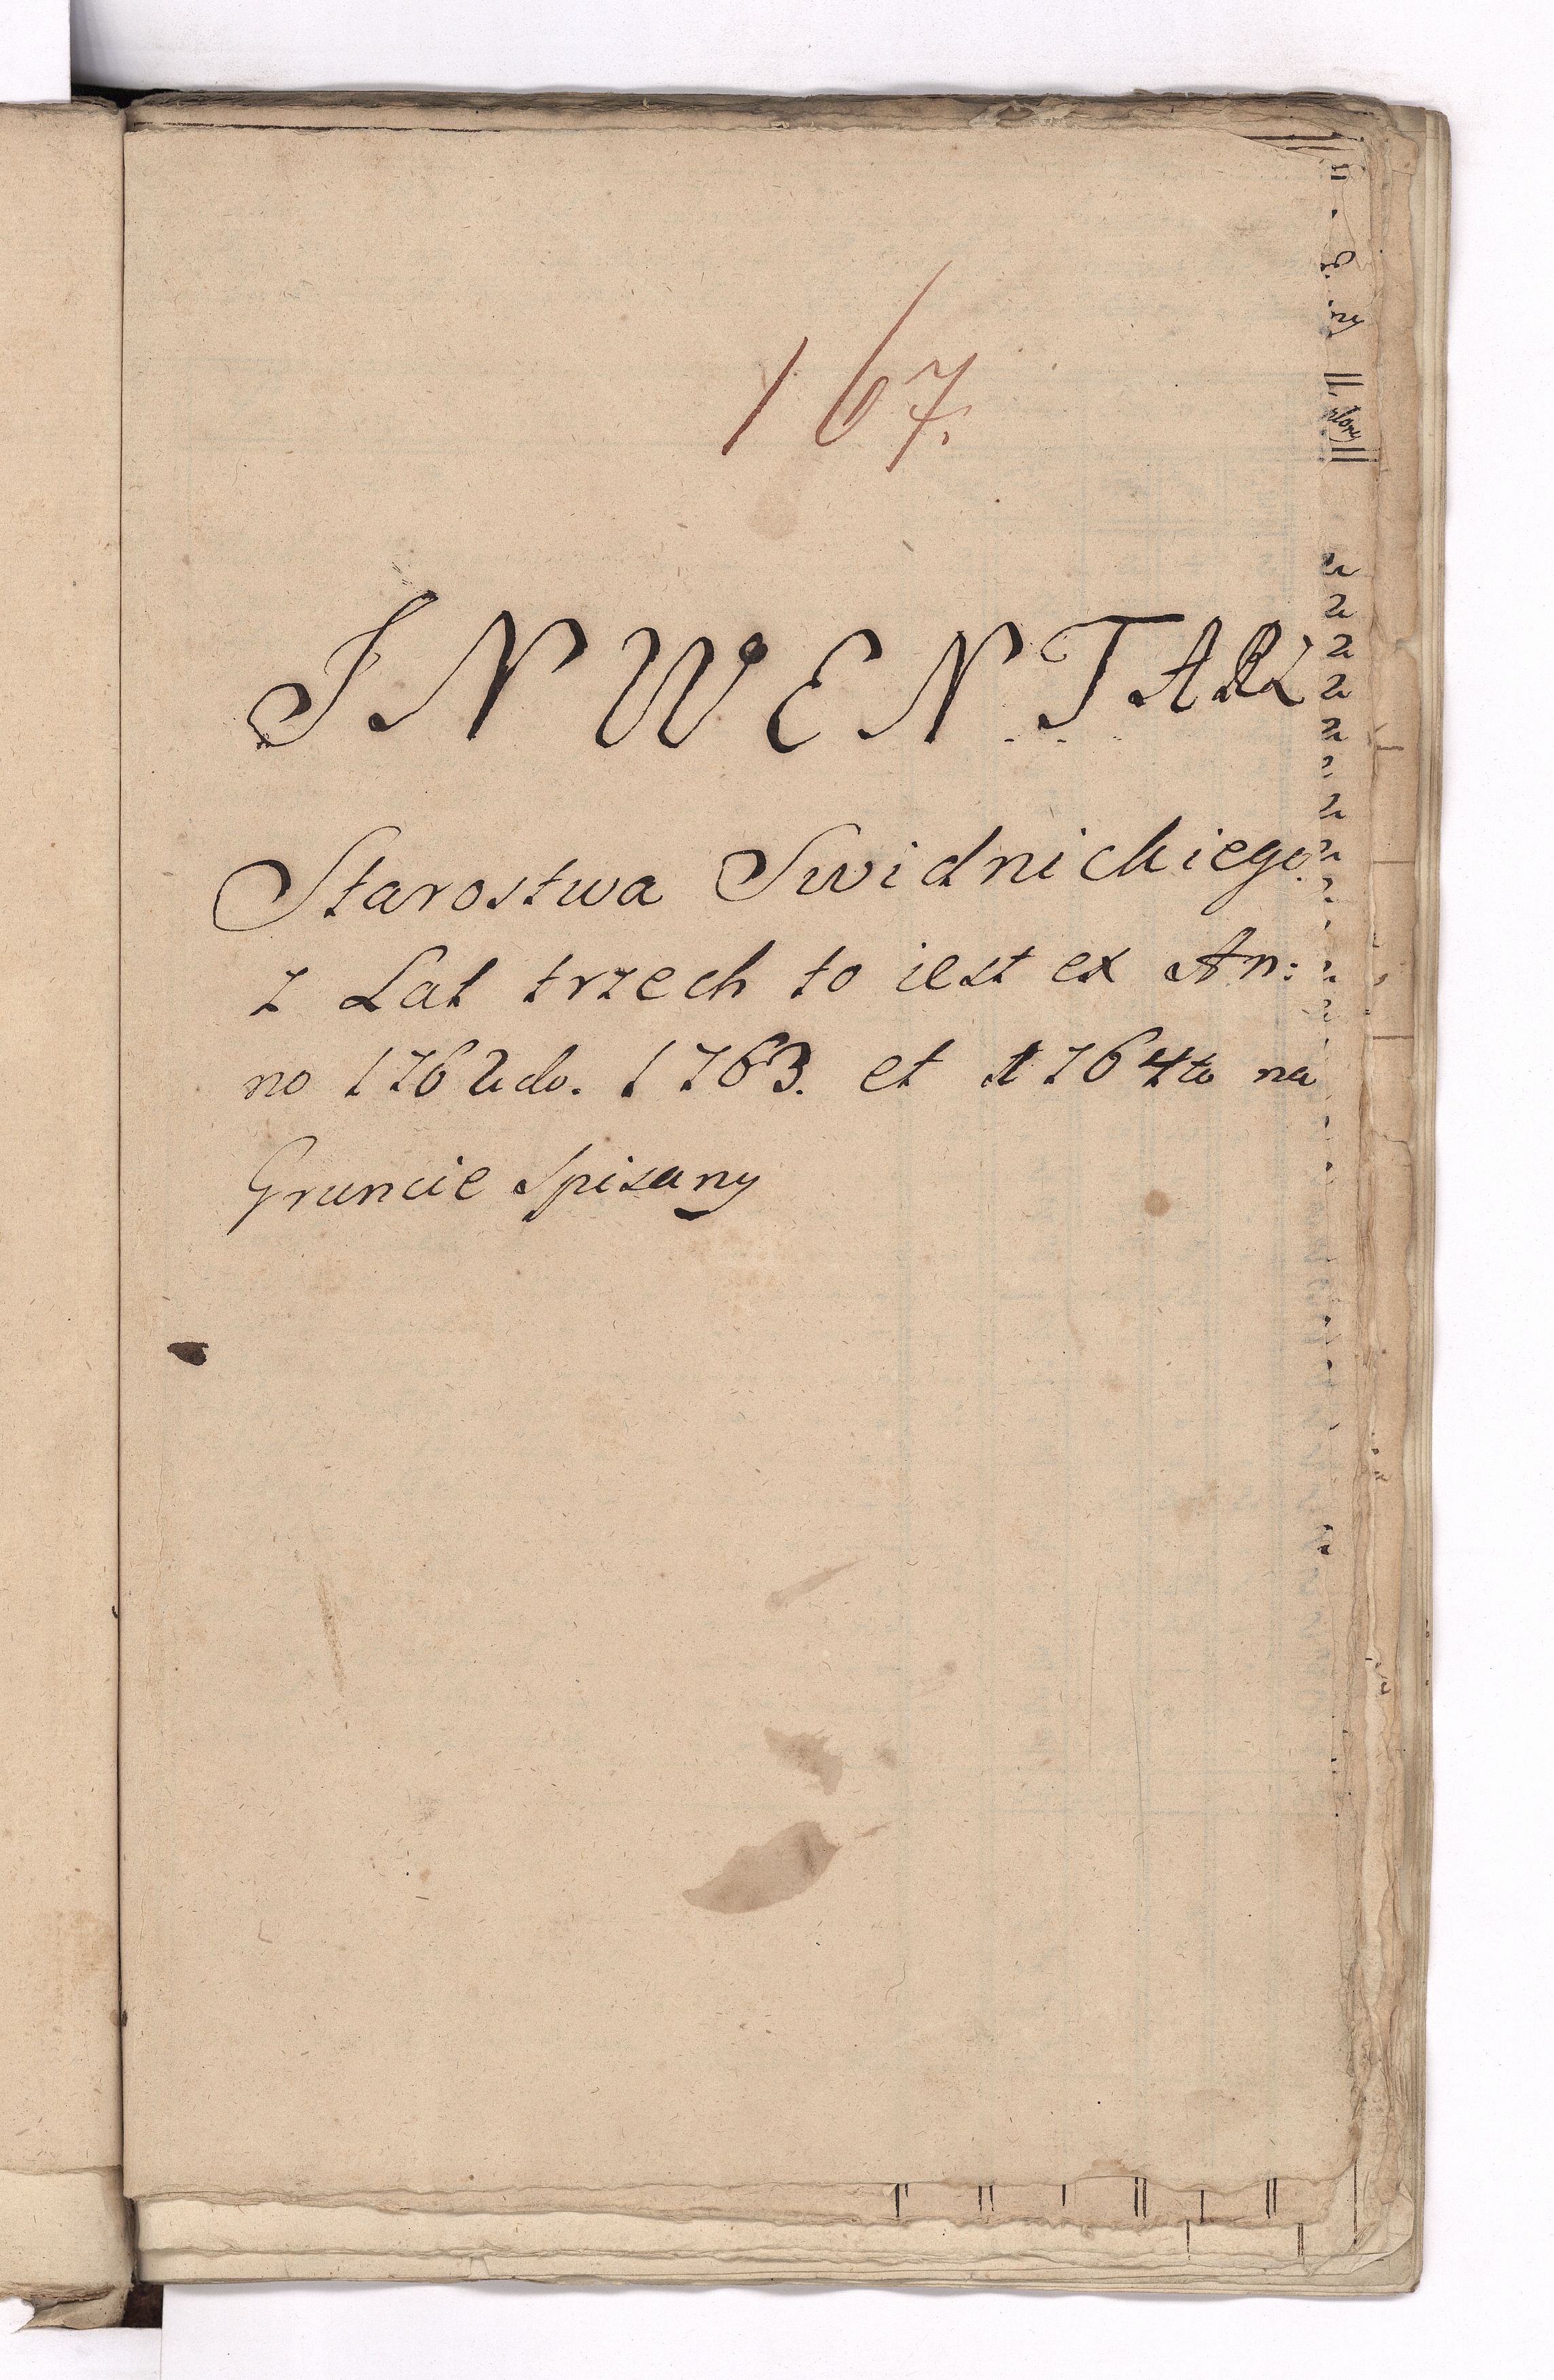 167.
INWENTARZ
Starostwa Swidnickiego
z Lat trzech to iest ex An:
no 1762do. 1763. et 1764to na
Gruncie Spisany